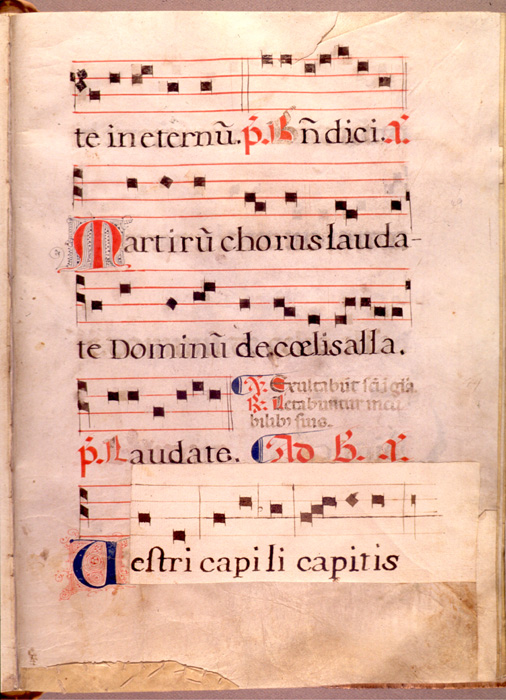 te in eternũ. p̃. Bñdici. A̴.
Martirũ chorus lauda-
te Dominũ de cœlis alla.
℣. Exultabũt sc̃i ĩ gl̃a.
℟. Letabuntur in cu
bilibꝰ suis.
p̃. Laudate. Ad B. A̴.
Vestri capili capitis